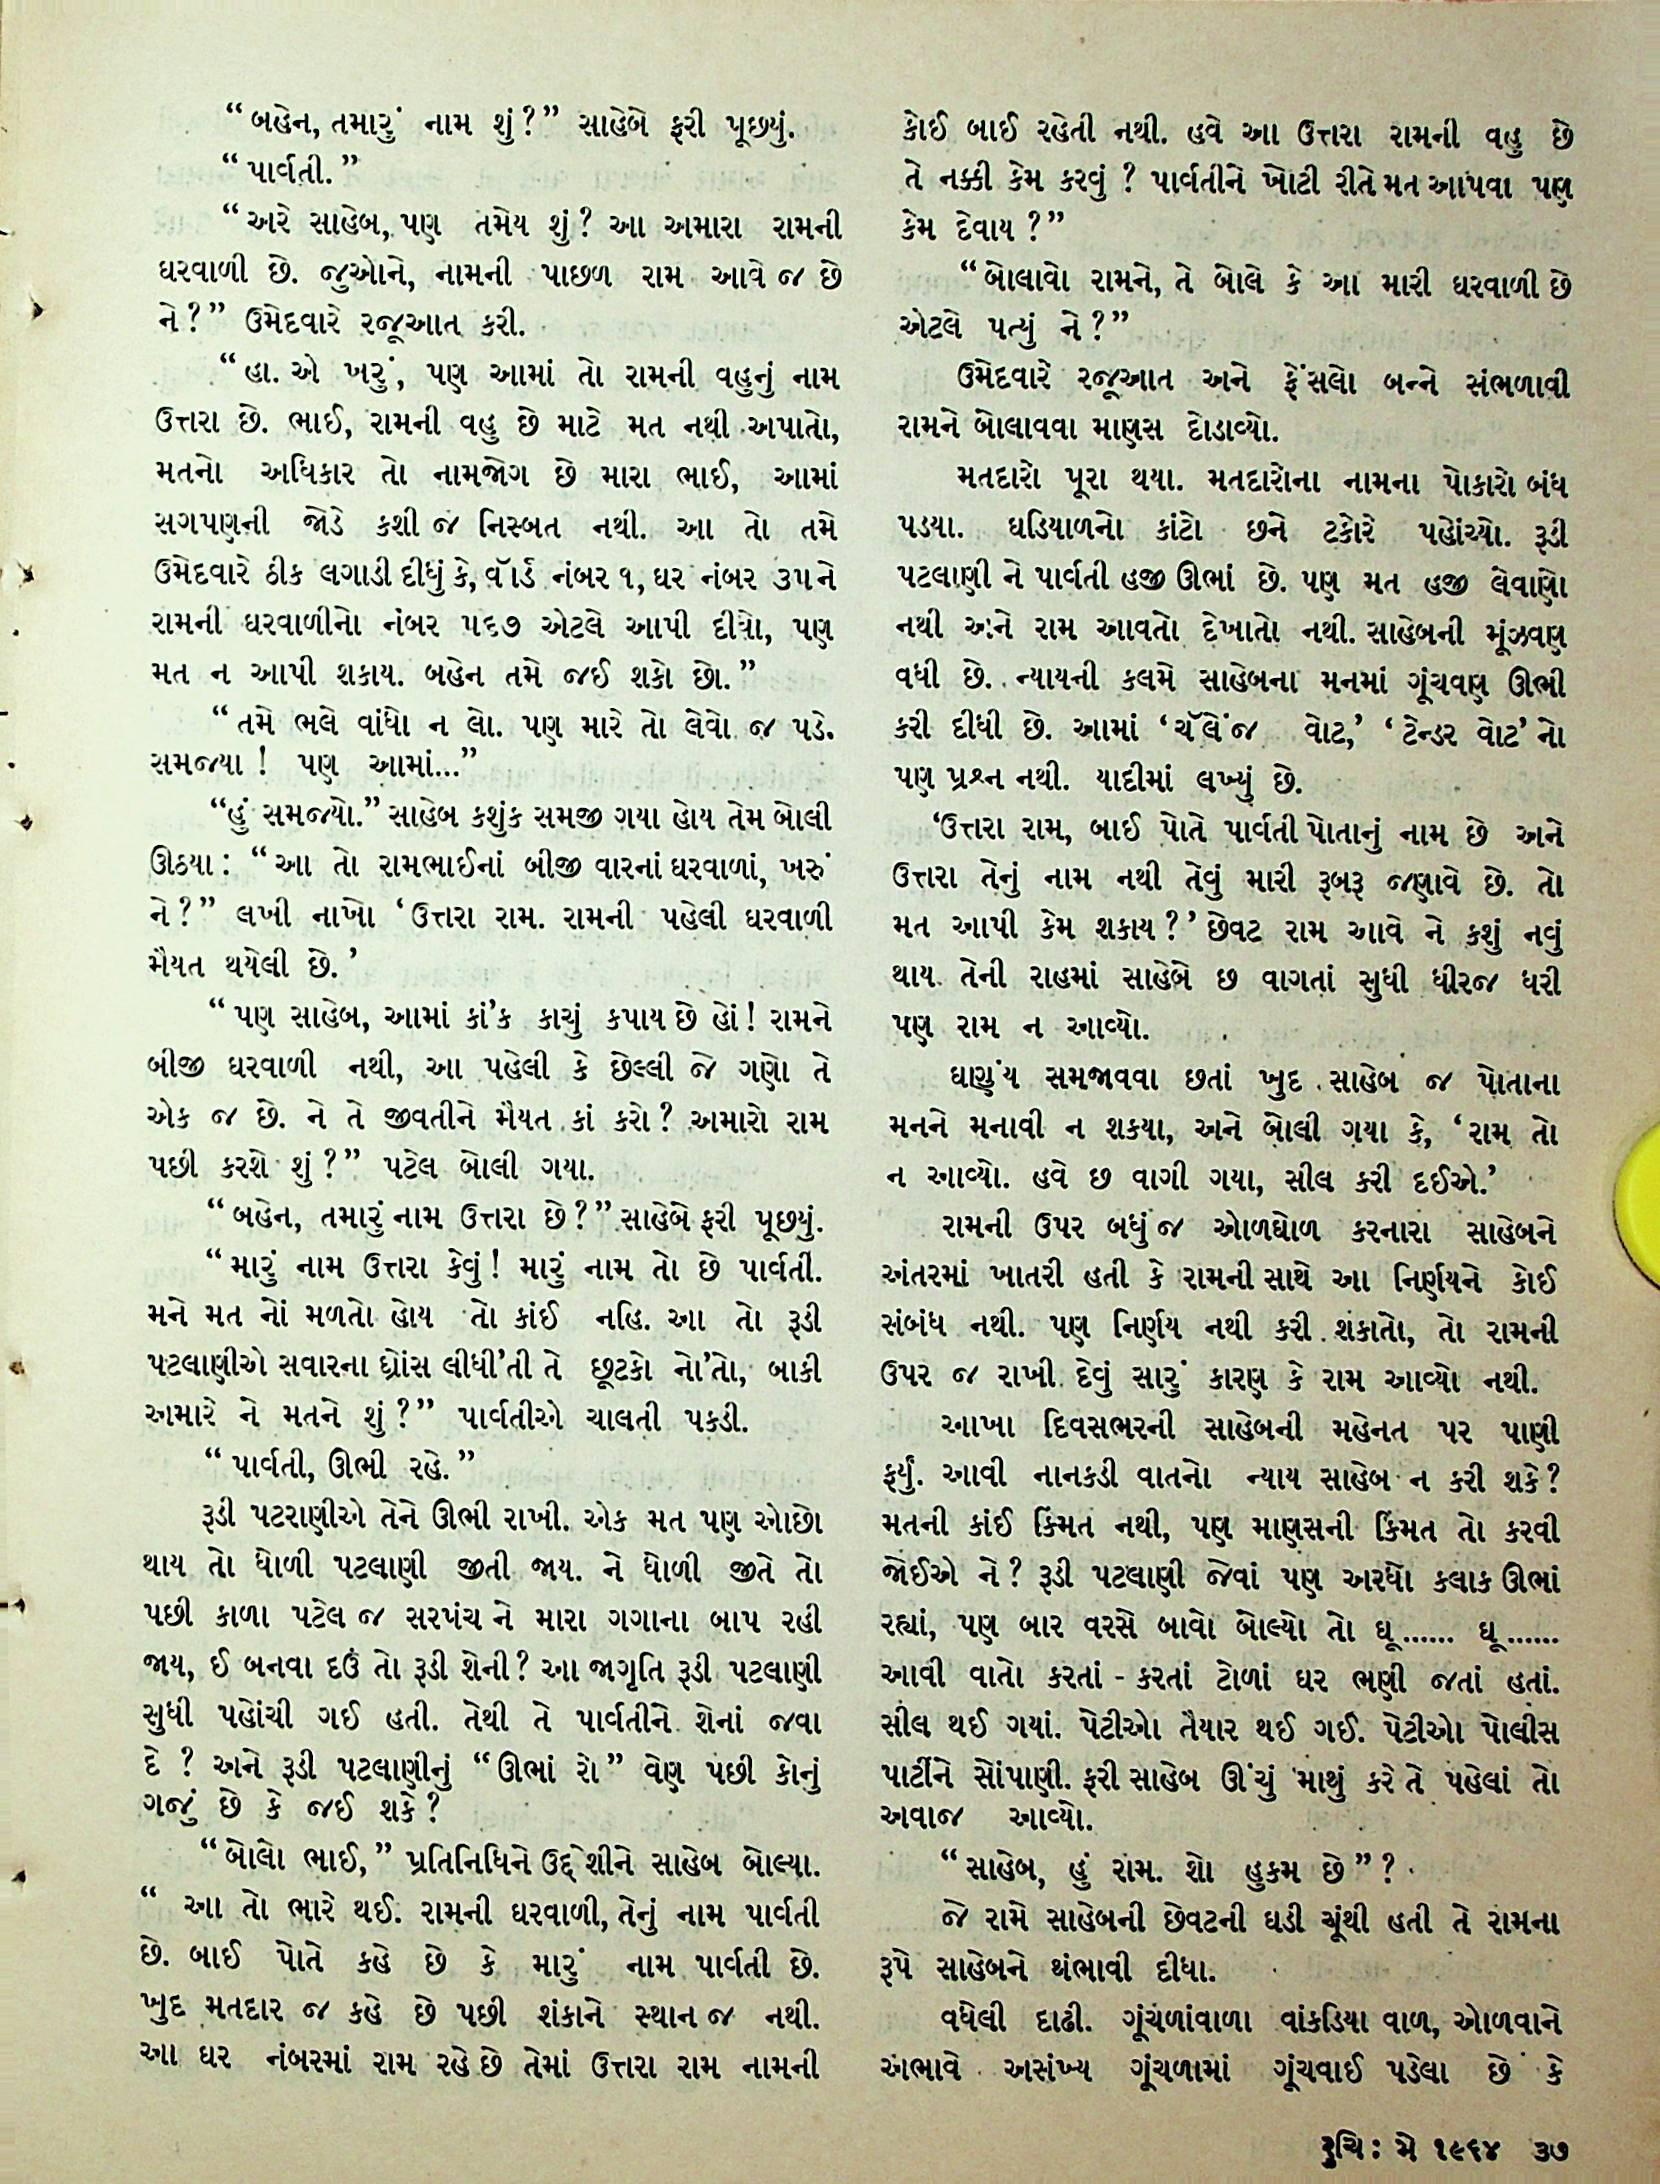 “બહેન, તમારું નામ શું?” સાહેબે ફરી પૂછયું.
“પાર્વતી.”
“અરે સાહેબ, પણ તમેય શું? આ અમારા રામની
ઘરવાળી છે. જુઓને, નામની પાછળ રામ આવે જ છે
ને?” ઉમેદવારે રજૂઆત કરી.
“હા. એ ખરું, પણ આમાં તો રામની વહુનું નામ
ઉત્તરા છે. ભાઈ, રામની વહુ છે માટે મત નથી અપાતો,
મતનો અધિકાર તો નામજોગ છે મારા ભાઈ, આમાં
સગપણની જોડે કશી જ નિસ્બત નથી. આ તો તમે
ઉમેદવારે ઠીક લગાડી દીધું કે, વૉર્ડ નંબર ૧, ઘર નંબર ૩૫ને
રામની ઘરવાળીનો નંબર ૫૬૭ એટલે આપી દીયો, પણ
મત ન આપી શકાય. બહેન તમે જઈ શકો છો.”
“તમે ભલે વાંધો ન લો. પણ મારે તો લેવો જ પડે.
સમજયા! પણ આમાં...”
“હું સમજયો.” સાહેબ કશુંક સમજી ગયા હોય તેમ બોલી
ઊઠયા: “આ તો રામભાઈનાં બીજી વારનાં ઘરવાળાં, ખરું
ને?” લખી નાખો ‘ઉત્તરા રામ. રામની પહેલી ઘરવાળી
મૈયત થયેલી છે.’
“પણ સાહેબ, આમાં કાં’ક કાચું કપાય છે હોં! રામને
બીજી ઘરવાળી નથી, આ પહેલી કે છેલ્લી જે ગણો તે
એક જ છે. ને તે જીવતીને મૈયત કાં કરો? અમારો રામ
પછી કરશે શું?” પટેલ બોલી ગયા.
“બહેન, તમારું નામ ઉત્તરા છે?” સાહેબે ફરી પૂછયું.
“મારું નામ ઉત્તરા કેવું! મારું નામ તો છે પાર્વતી.
મને મત નોં મળતો હોય તો કાંઈ નહિ. આ તો રૂડી
પટલાણીએ સવારના ધ્રોંસ લીધી’તી તે છૂટકો નો’તો, બાકી
અમારે ને મતને શું?” પાર્વતીએ ચાલતી પકડી.
“પાર્વતી, ઊભી રહે.”
રૂડી પટરાણીએ તેને ઊભી રાખી. એક મત પણ ઓછો
થાય તો ધોળી પટલાણી જીતી જાય. ને ધોળી જીતે તો
પછી કાળા પટેલ જ સરપંચ ને મારા ગગાના બાપ રહી
જાય, ઈ બનવા દઉં તો રૂડી શેની? આ જાગૃતિ રૂડી પટલાણી
સુધી પહોંચી ગઈ હતી. તેથી તે પાર્વતીને શેનાં જવા
દે? અને રૂડી પટલાણીનું “ઊભાં રો” વેણ પછી કોનું
ગજું છે કે જઈ શકે?
“બોલો ભાઈ,” પ્રતિનિધિને ઉદ્દેશીને સાહેબ બોલ્યા.
“આ તો ભારે થઈ. રામની ઘરવાળી, તેનું નામ પાર્વતી
છે. બાઈ પોતે કહે છે કે મારું નામ પાર્વતી છે.
ખુદ મતદાર જ કહે છે પછી શંકાને સ્થાન જ નથી.
આ ઘર નંબરમાં રામ રહે છે તેમાં ઉત્તરા રામ નામની
કોઈ બાઈ રહેતી નથી. હવે આ ઉત્તરા રામની વહુ છે
તે નક્કી કેમ કરવું? પાર્વતીને ખોટી રીતે મત આપવા પણ
કેમ દેવાય?”
“બોલાવો રામને, તે બોલે કે આ મારી ઘરવાળી છે
એટલે પત્યું ને?”
ઉમેદવારે રજૂઆત અને ફેંસલો બન્ને સંભળાવી
રામને બોલાવવા માણસ દોડાવ્યો.
મતદારો પૂરા થયા. મતદારોના નામના પોકારો બંધ
પડયા. ઘડિયાળનો કાંટો છને ટકોરે પહોંચ્યો. રૂડી
પટલાણી ને પાર્વતી હજી ઊભાં છે. પણ મત હજી લેવાણો
નથી અને રામ આવતો દેખાતો નથી. સાહેબની મૂંઝવણ
વધી છે. ન્યાયની કલમે સાહેબના મનમાં ગૂંચવણ ઊભી
કરી દીધી છે. આમાં ‘ચૅલેંજ વોટ,’ ‘ટેન્ડર વોટ’નો
પણ પ્રશ્ન નથી. યાદીમાં લખ્યું છે.
‘ઉત્તરા રામ, બાઈ પોતે પાર્વતી પોતાનું નામ છે અને
ઉત્તરા તેનું નામ નથી તેવું મારી રૂબરૂ જણાવે છે. તો
મત આપી કેમ શકાય?’ છેવટ રામ આવે ને કશું નવું
થાય તેની રાહમાં સાહેબે છ વાગતાં સુધી ધીરજ ધરી
પણ રામ ન આવ્યો.
ઘણુંય સમજાવવા છતાં ખુદ સાહેબ જ પોતાના
મનને મનાવી ન શકયા, અને બોલી ગયા કે, ‘રામ તો
ન આવ્યો. હવે છ વાગી ગયા, સીલ કરી દઈએ.’
રામની ઉપર બધું જ ઓળઘોળ કરનારા સાહેબને
અંતરમાં ખાતરી હતી કે રામની સાથે આ નિર્ણયને કોઈ
સંબંધ નથી. પણ નિર્ણય નથી કરી શકાતો, તો રામની
ઉપર જ રાખી દેવું સારું કારણ કે રામ આવ્યો નથી.
આખા દિવસભરની સાહેબની મહેનત પર પાણી
ફર્યું. આવી નાનકડી વાતનો ન્યાય સાહેબ ન કરી શકે?
મતની કાંઈ કિંમત નથી, પણ માણસની કિંમત તો કરવી
જોઈએ ને? રૂડી પટલાણી જેવાં પણ અરધો કલાક ઊભાં
રહ્યાં, પણ બાર વરસે બાવો બોલ્યો તો ઘૂ...... ઘૂ......
આવી વાતો કરતાં - કરતાં ટોળાં ઘર ભણી જતાં હતાં.
સીલ થઈ ગયાં. પેટીઓ તૈયાર થઈ ગઈ. પેટીઓ પોલીસ
પાર્ટીને સોંપાણી. ફરી સાહેબ ઊંચું માથું કરે તે પહેલાં તો
અવાજ આવ્યો.
“સાહેબ, હું રામ. શો હુકમ છે”?
જે રામે સાહેબની છેવટની ઘડી ચૂંથી હતી તે રામના
રૂપે સાહેબને થંભાવી દીધા.
વધેલી દાઢી. ગૂંચળાંવાળા વાંકડિયા વાળ, ઓળવાને
અભાવે અસંખ્ય ગૂંચળામાં ગૂંચવાઈ પડેલા છે કે
રુચિ: મે ૧૯૬૪ ૩૭